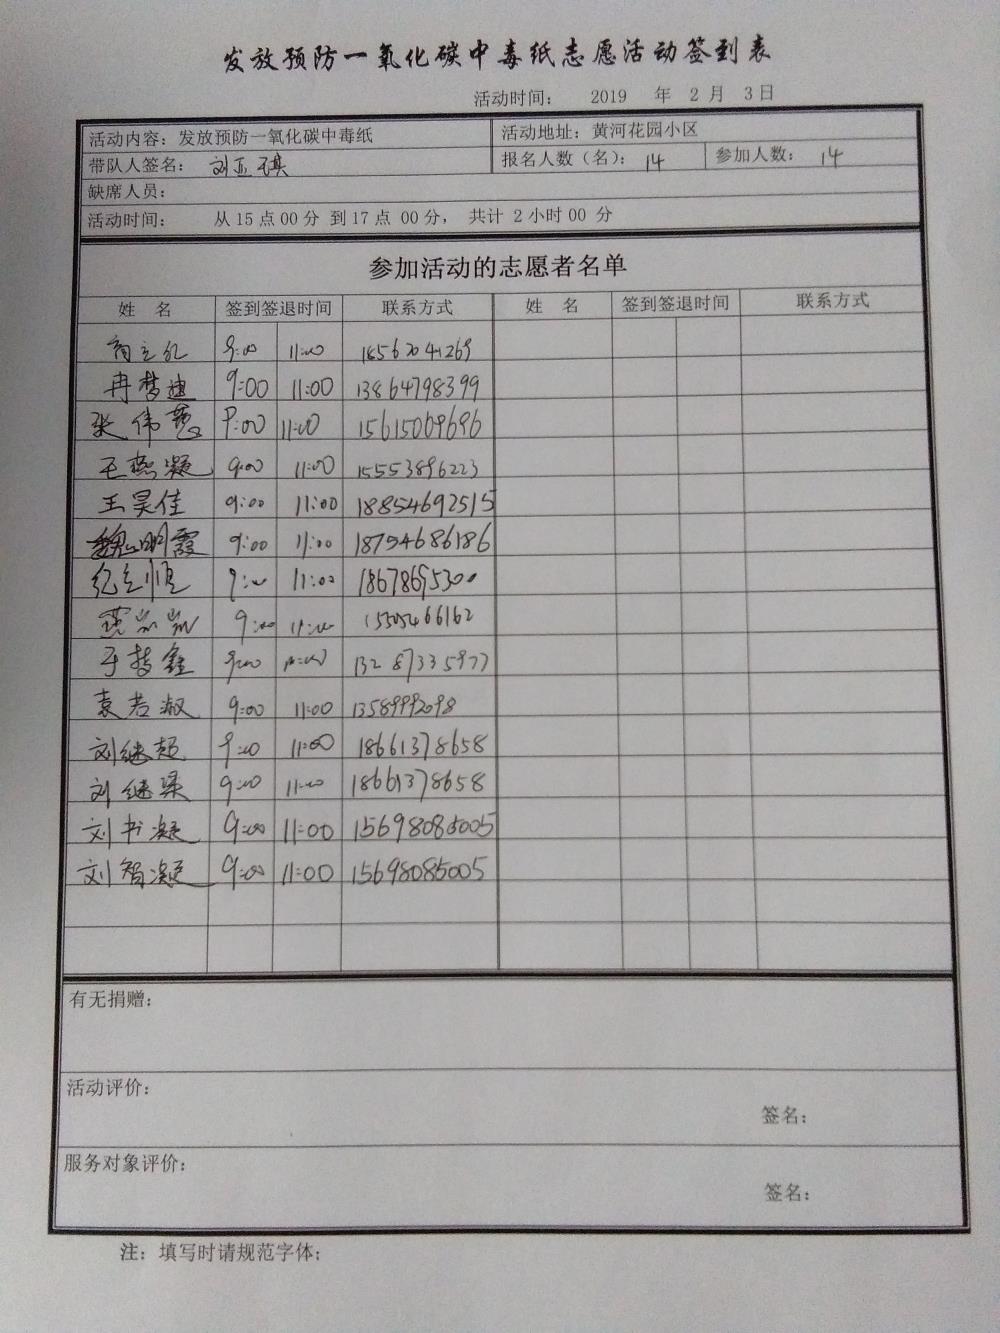 发放预防一氧化碳中毒纸志愿活动签到表
活动时间: 2019 年 2 月 3日
活动内容: 发放预防一氧化碳中毒纸 活动地址: 黄河花园小区
带队人签名: 刘亚琪 报名人数(名): 14 参加人数: 14
缺席人员:
活动时间: 从15点00分 到17点 00分, 共计 2小时00 分
参加活动的志愿者名单
姓 名 签到签退时间 联系方式 姓 名 签到签退时间 联系方式
9:00 11:00 18562041269
冉梦迪 9:00 11:00 13864798399
张伟慧 9:00 11:00 15615009696
王燕凝 9:00 11:00 15553896223
王昊佳 9:00 11:00 18854692515
魏明霞 9:00 11:00 18754686186
纪立恒 9:00 11:00 18678695300
9:00 11:00 15505466162
于梦鑫 9:00 11:00 13287335977
袁若淑 9:00 11:00 13589992098
刘继超 9:00 11:00 18661378658
刘继梁 9:00 11:00 18661378658
刘书凝 9:00 11:00 15698085005
刘智凝 9:00 11:00 15698085005
有无捐赠:
活动评价:
签名:
服务对象评价:
签名:
注: 填写时请规范字体;